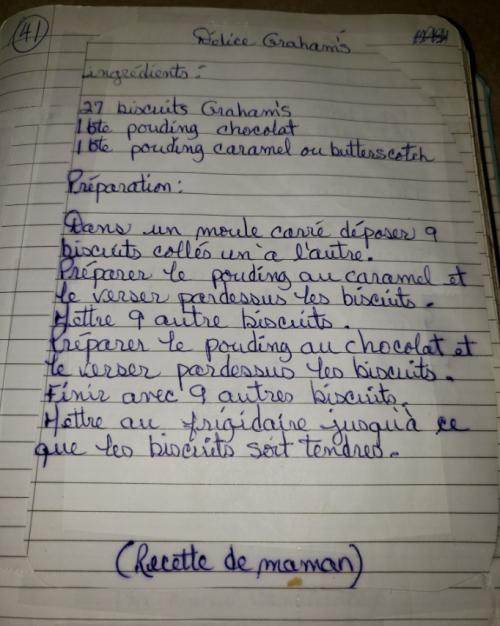 41
Délice Graham's
ingrédients:
27 biscuits Graham's
1 bte pouding chocolat
1 bte pouding caramel ou butterscotch
Préparation:
Dans un moule carré déposer 9
biscuits collés un a l'autre.
Préparer le pouding au caramel et
le verser pardessus les biscuits.
Mettre 9 autre biscuits.
Préparer le pouding au chocolat et
le verser pardessus les biscuits.
Finir avec 9 autres biscuits.
Mettre au frigidaire jusqu'à ce
que les biscuits soit tendres.
(Recette de maman)